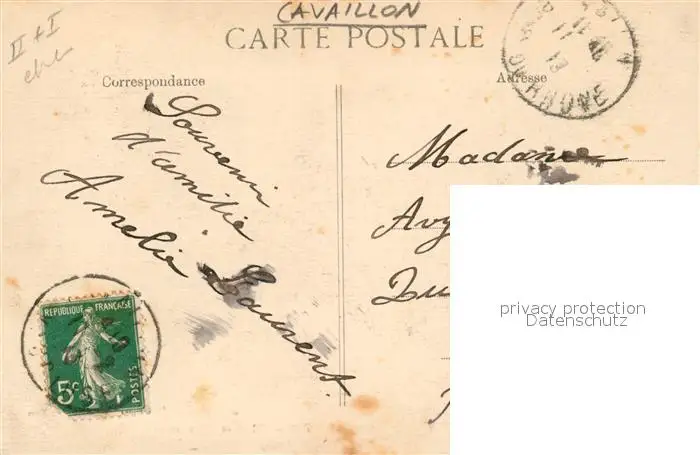 CAVAILLON
II + I
CARTE POSTALE
Correspondance
Adresse
Souvenir
d'amitié
Amelie Laurent.
Madame
Avy
privacy protection
Datenschutz
RHONE
REPUBLIQUE FRANÇAISE
5c
POSTES